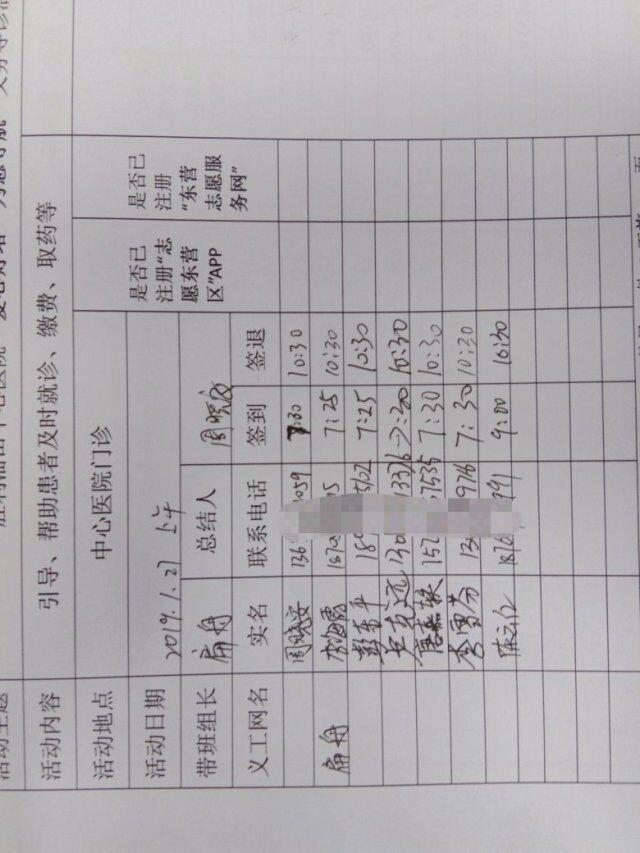 活动主题
活动内容 引导、帮助患者及时就诊、缴费、取药等
活动地点 中心医院门诊
活动日期 2019.1.27 上午
带班组长 扁舟 总结人 周晓安
义工网名 实名 联系电话 签到 签退 是否已注册“志愿东营区”APP 是否已注册“东营志愿服务网”
周晓安 136 059 7:30 10:30
扁舟 李海霞 1870 05 7:25 10:30
彭东平 189 7:25 10:30
130 13376 7:30 10:30
唐嘉轶 152 57535 7:30 10:30
李雪芬 9716 7:30 10:30
陈立仁 1876 991 9:00 10:30